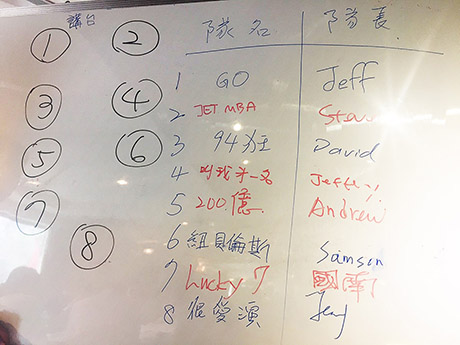 講台
① ②
③ ④
⑤ ⑥
⑦
⑧
隊名 隊長
1 GO Jeff
2 JET MBA
3 94狂 David
4 叫我第一名
5 200億 Andrew
6 紐貝倫斯 Samson
7 Lucky 7
8 很愛演